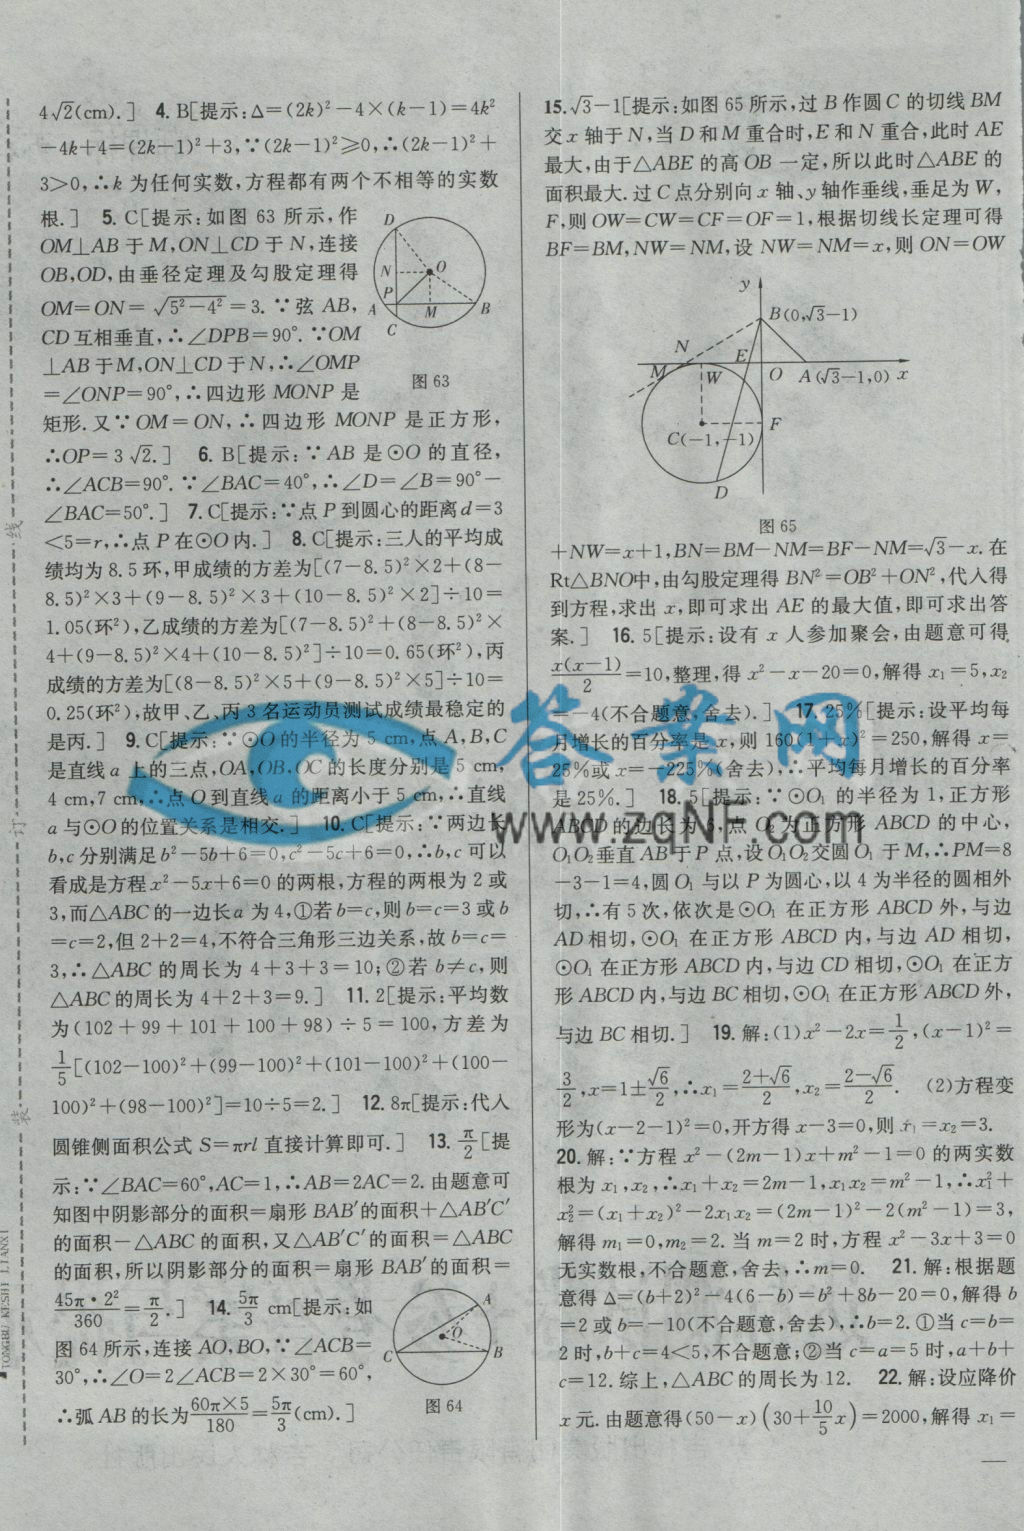 4√2(cm).] 4. B[提示:Δ=(2k)²-4×(k-1)=4k²
-4k+4=(2k-1)²+3,∵(2k-1)²≥0,∴(2k-1)²+
3>0,∴k 为任何实数,方程都有两个不相等的实数
根.] 5. C[提示:如图 63 所示,作
OM⊥AB 于 M,ON⊥CD 于 N,连接
OB,OD,由垂径定理及勾股定理得
OM=ON=√(5²-4²)=3.∵弦 AB,
CD 互相垂直,∴∠DPB=90°.∵OM
⊥AB 于 M,ON⊥CD 于 N,∴∠OMP
=∠ONP=90°,∴四边形 MONP 是
矩形.又∵OM=ON,∴四边形 MONP 是正方形,
∴OP=3√2.] 6. B[提示:∵AB 是⊙O 的直径,
∴∠ACB=90°.∵∠BAC=40°,∴∠D=∠B=90°-
∠BAC=50°.] 7. C[提示:∵点 P 到圆心的距离 d=3
<5=r,∴点 P 在⊙O 内.] 8. C[提示:三人的平均成
绩均为 8.5 环,甲成绩的方差为[(7-8.5)²×2+(8-
8.5)²×3+(9-8.5)²×3+(10-8.5)²×2]÷10=
1.05(环²),乙成绩的方差为[(7-8.5)²+(8-8.5)²×
4+(9-8.5)²×4+(10-8.5)²]÷10=0.65(环²),丙
成绩的方差为[(8-8.5)²×5+(9-8.5)²×5]÷10=
0.25(环²),故甲、乙、丙 3 名运动员测试成绩最稳定的
是丙.] 9. C[提示:∵⊙O 的半径为 5 cm,点 A,B,C
是直线 a 上的三点,OA,OB,OC 的长度分别是 5 cm,
4 cm,7 cm,∴点 O 到直线 a 的距离小于 5 cm,∴直线
a 与⊙O 的位置关系是相交.] 10. C[提示:∵两边长
b,c 分别满足 b²-5b+6=0,c²-5c+6=0,∴b,c 可以
看成是方程 x²-5x+6=0 的两根,方程的两根为 2 或
3,而△ABC 的一边长 a 为 4,①若 b=c,则 b=c=3 或 b
=c=2,但 2+2=4,不符合三角形三边关系,故 b=c=
3,∴△ABC 的周长为 4+3+3=10;②若 b≠c,则
△ABC 的周长为 4+2+3=9.] 11. 2[提示:平均数
为(102+99+101+100+98)÷5=100,方差为
1/5[(102-100)²+(99-100)²+(101-100)²+(100-
100)²+(98-100)²]=10÷5=2.] 12. 8π[提示:代入
圆锥侧面积公式 S=πrl 直接计算即可.] 13. π/2[提
示:∵∠BAC=60°,AC=1,∴AB=2AC=2.由题意可
知图中阴影部分的面积=扇形 BAB′的面积+△AB′C′
的面积-△ABC 的面积,又△AB′C′的面积=△ABC
的面积,所以阴影部分的面积=扇形 BAB′的面积=
45π·2²/360=π/2.] 14. 5π/3 cm[提示:如
图 64 所示,连接 AO,BO,∵∠ACB=
30°,∴∠O=2∠ACB=2×30°=60°,
∴弧 AB 的长为60π×5/180=5π/3(cm).]
D
N
O
P
A
M
B
C
图 63
A
O
C
B
图 64
15. √3-1[提示:如图 65 所示,过 B 作圆 C 的切线 BM
交 x 轴于 N,当 D 和 M 重合时,E 和 N 重合,此时 AE
最大,由于△ABE 的高 OB 一定,所以此时△ABE 的
面积最大.过 C 点分别向 x 轴、y 轴作垂线,垂足为 W,
F,则 OW=CW=CF=OF=1,根据切线长定理可得
BF=BM,NW=NM,设 NW=NM=x,则 ON=OW
y
B(0,√3-1)
N
E
M
W
O
A(√3-1,0)
x
F
C(-1,-1)
D
图 65
+NW=x+1,BN=BM-NM=BF-NM=√3-x.在
Rt△BNO中,由勾股定理得 BN²=OB²+ON²,代入得
到方程,求出 x,即可求出 AE 的最大值,即可求出答
案.] 16. 5[提示:设有 x 人参加聚会,由题意可得
x(x-1)/2=10,整理,得 x²-x-20=0,解得 x₁=5,x₂
=-4(不合题意,舍去).] 17. 25%[提示:设平均每
月增长的百分率是 x,则 160(1+x)²=250,解得 x=
25%或 x=-225%(舍去),∴平均每月增长的百分率
是 25%.] 18. 5[提示:∵⊙O₁ 的半径为 1,正方形
ABCD 的边长为 6,点 O₂ 为正方形 ABCD 的中心,
O₁O₂垂直 AB 于 P 点,设 O₁O₂交圆 O₁ 于 M,∴PM=8
-3-1=4,圆 O₁ 与以 P 为圆心,以 4 为半径的圆相外
切,∴有 5 次,依次是⊙O₁ 在正方形 ABCD 外,与边
AD 相切,⊙O₁ 在正方形 ABCD 内,与边 AD 相切,
⊙O₁ 在正方形 ABCD 内,与边 CD 相切,⊙O₁ 在正方
形 ABCD 内,与边 BC 相切,⊙O₁ 在正方形 ABCD 外,
与边 BC 相切.] 19. 解:(1)x²-2x=1/2,(x-1)²=
3/2,x=1±√6/2,∴x₁=(2+√6)/2,x₂=(2-√6)/2. (2)方程变
形为(x-2-1)²=0,开方得 x-3=0,则 x₁=x₂=3.
20. 解:∵方程 x²-(2m-1)x+m²-1=0 的两实数
根为 x₁,x₂,∴x₁+x₂=2m-1,x₁x₂=m²-1,∴x₁²+
x₂²=(x₁+x₂)²-2x₁x₂=(2m-1)²-2(m²-1)=3,
解得 m₁=0,m₂=2.当 m=2 时,方程 x²-3x+3=0
无实数根,不合题意,舍去,∴m=0. 21. 解:根据题
意得 Δ=(b+2)²-4(6-b)=b²+8b-20=0,解得 b
=2 或 b=-10(不合题意,舍去),∴b=2.①当 c=b=
2 时,b+c=4<5,不合题意;②当 c=a=5 时,a+b+
c=12.综上,△ABC 的周长为 12. 22. 解:设应降价
x 元.由题意得(50-x)(30+10/5x)=2000,解得 x₁=
线
订
装
TONGBU KESHI LIANXI
答案网
www.zqNF.com